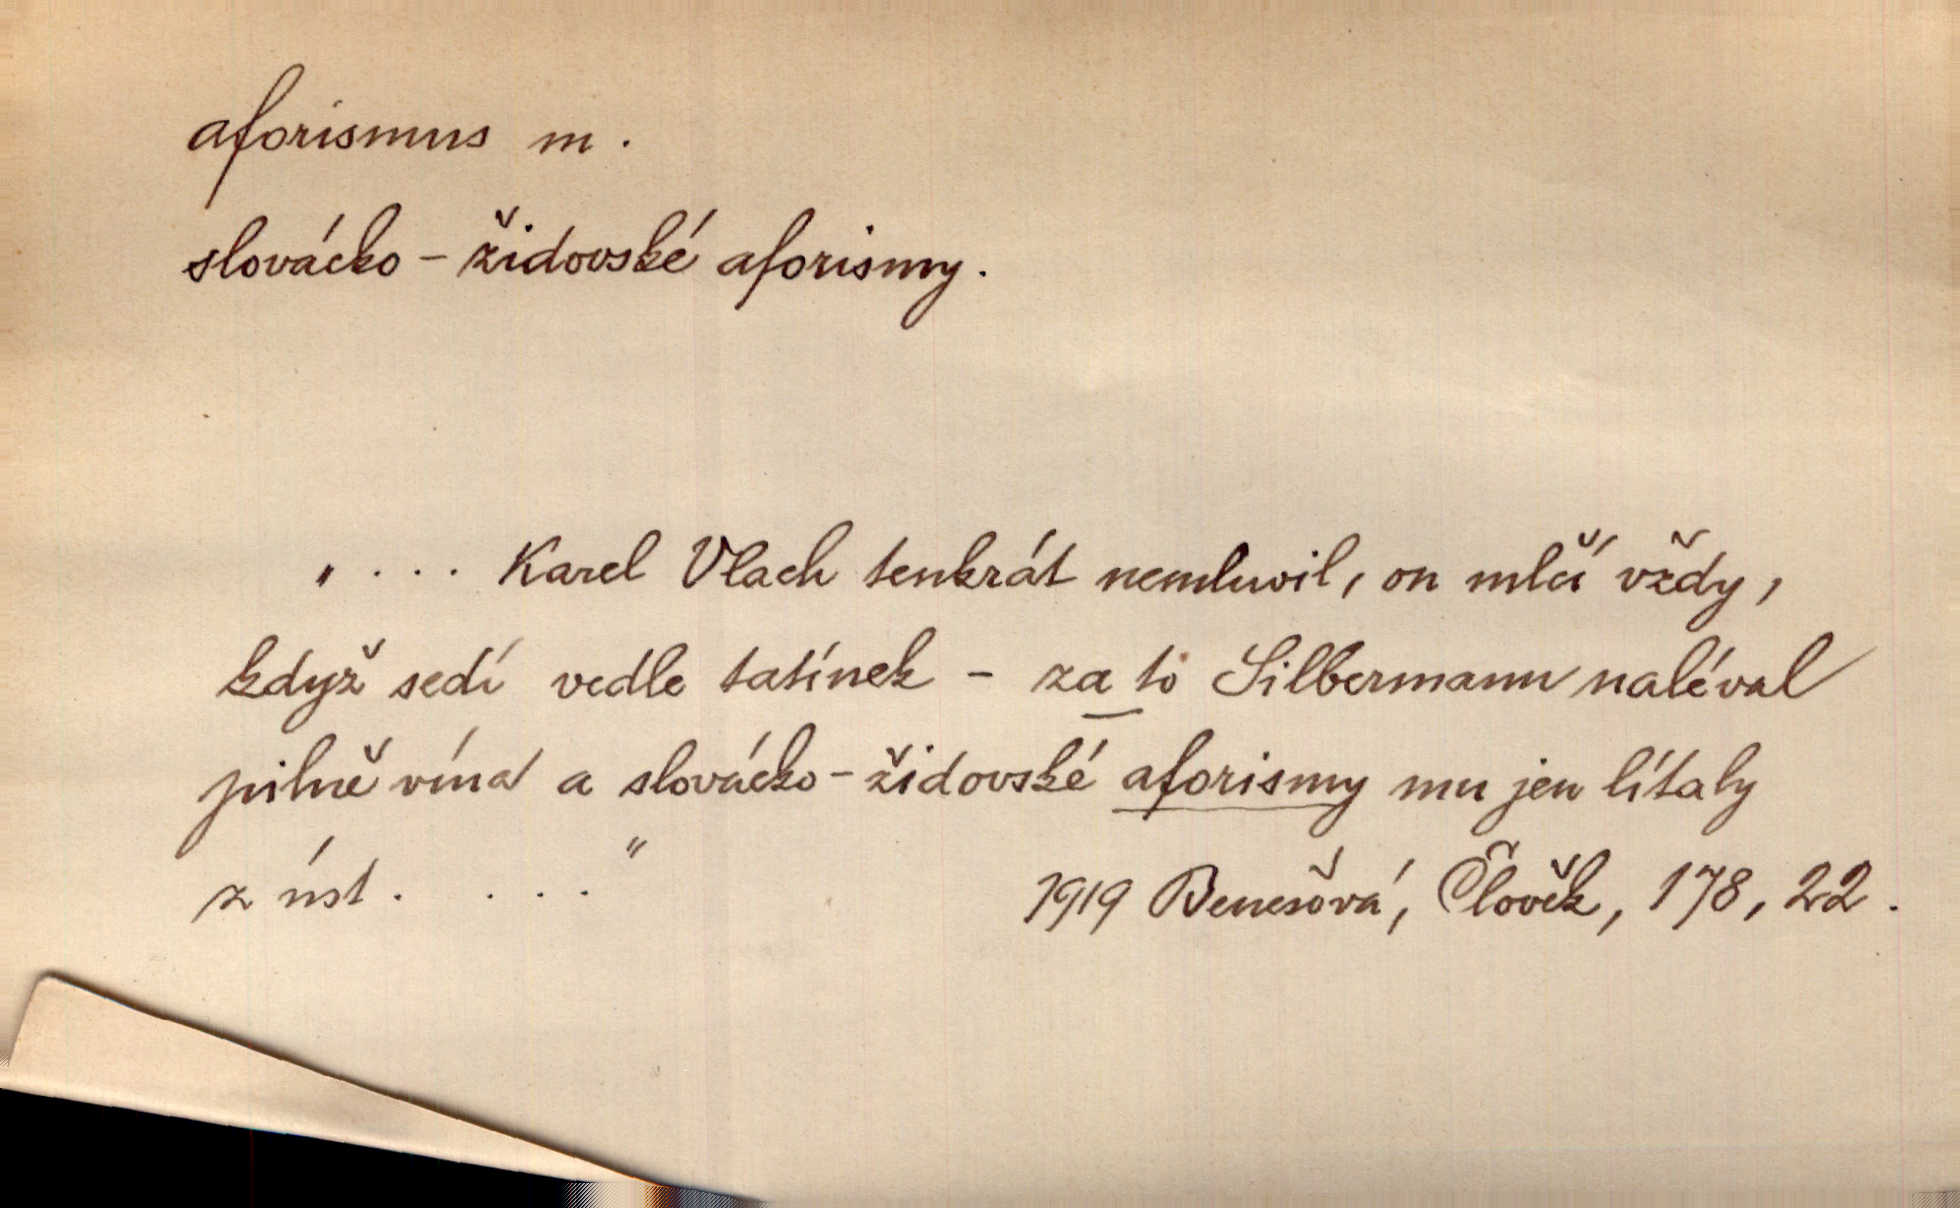 aforismus m.
slovácko-židovské aforismy.
„... Karel Vlach tenkrát nemluvil, on mlčí vždy,
když sedí vedle tatínek - za to Silbermann naléval
pilně vína a slovácko-židovské aforismy mu jen lítaly
z úst. ...“
1919 Benešová, Člověk, 178, 22.